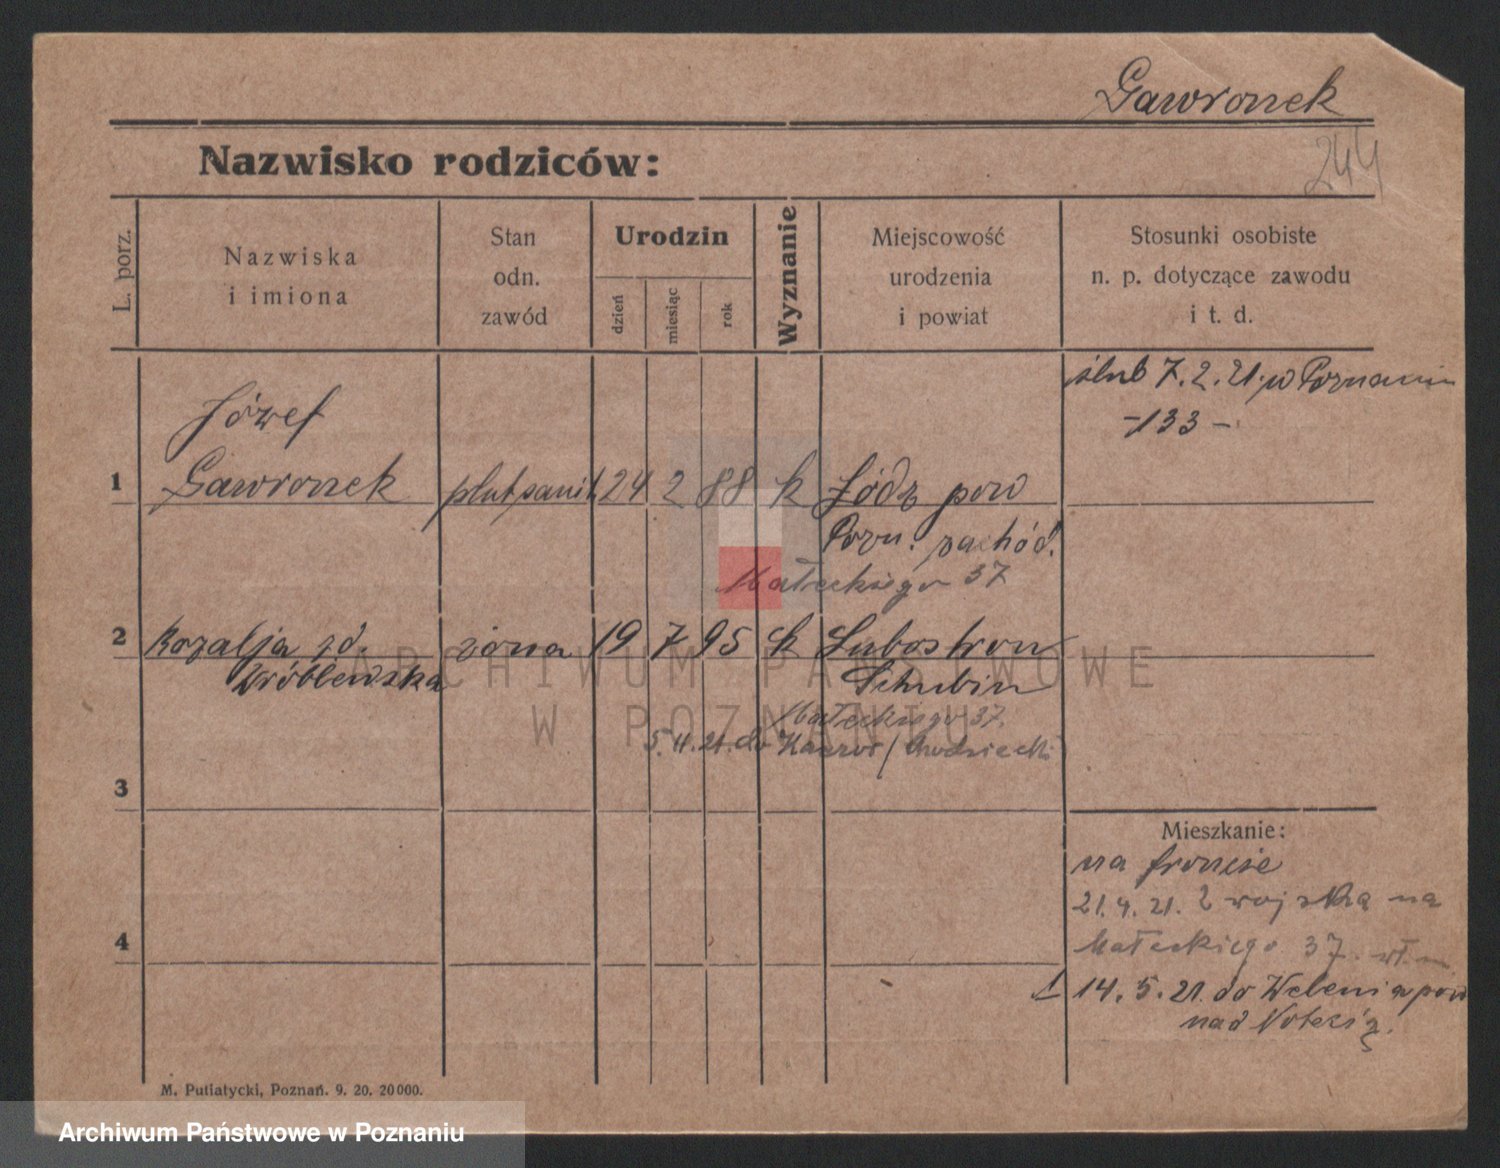 Gawronek
244
Nazwisko rodziców:
L. porz.
Nazwiska
i imiona
Stan
odn.
zawód
Urodzin
dzień
miesiąc
rok
Wyznanie
Miejscowość
urodzenia
i powiat
Stosunki osobiste
n. p. dotyczące zawodu
i t. d.
ślub 7.2.21. w Poznaniu
-133-
Józef
1 Gawronek plut sanit. 24 2 88 k Łódz pow
Pozn. zachód.
Małeckiego 37
2 Rozalja zd. żona 19 7 95 k Lubostron
Wróblewska Schubin
Małeckiego 37.
5.4.21. do Kaczor / Chodziecki
3
Mieszkanie:
na froncie
21.4.21. Z wojska na
Małeckiego 37.
4
1 14.5.21. do pow
nad Notecią.
M. Putiatycki, Poznań. 9. 20. 20000.
ARCHIWUM PAŃSTWOWE
W POZNANIU
Archiwum Państwowe w Poznaniu